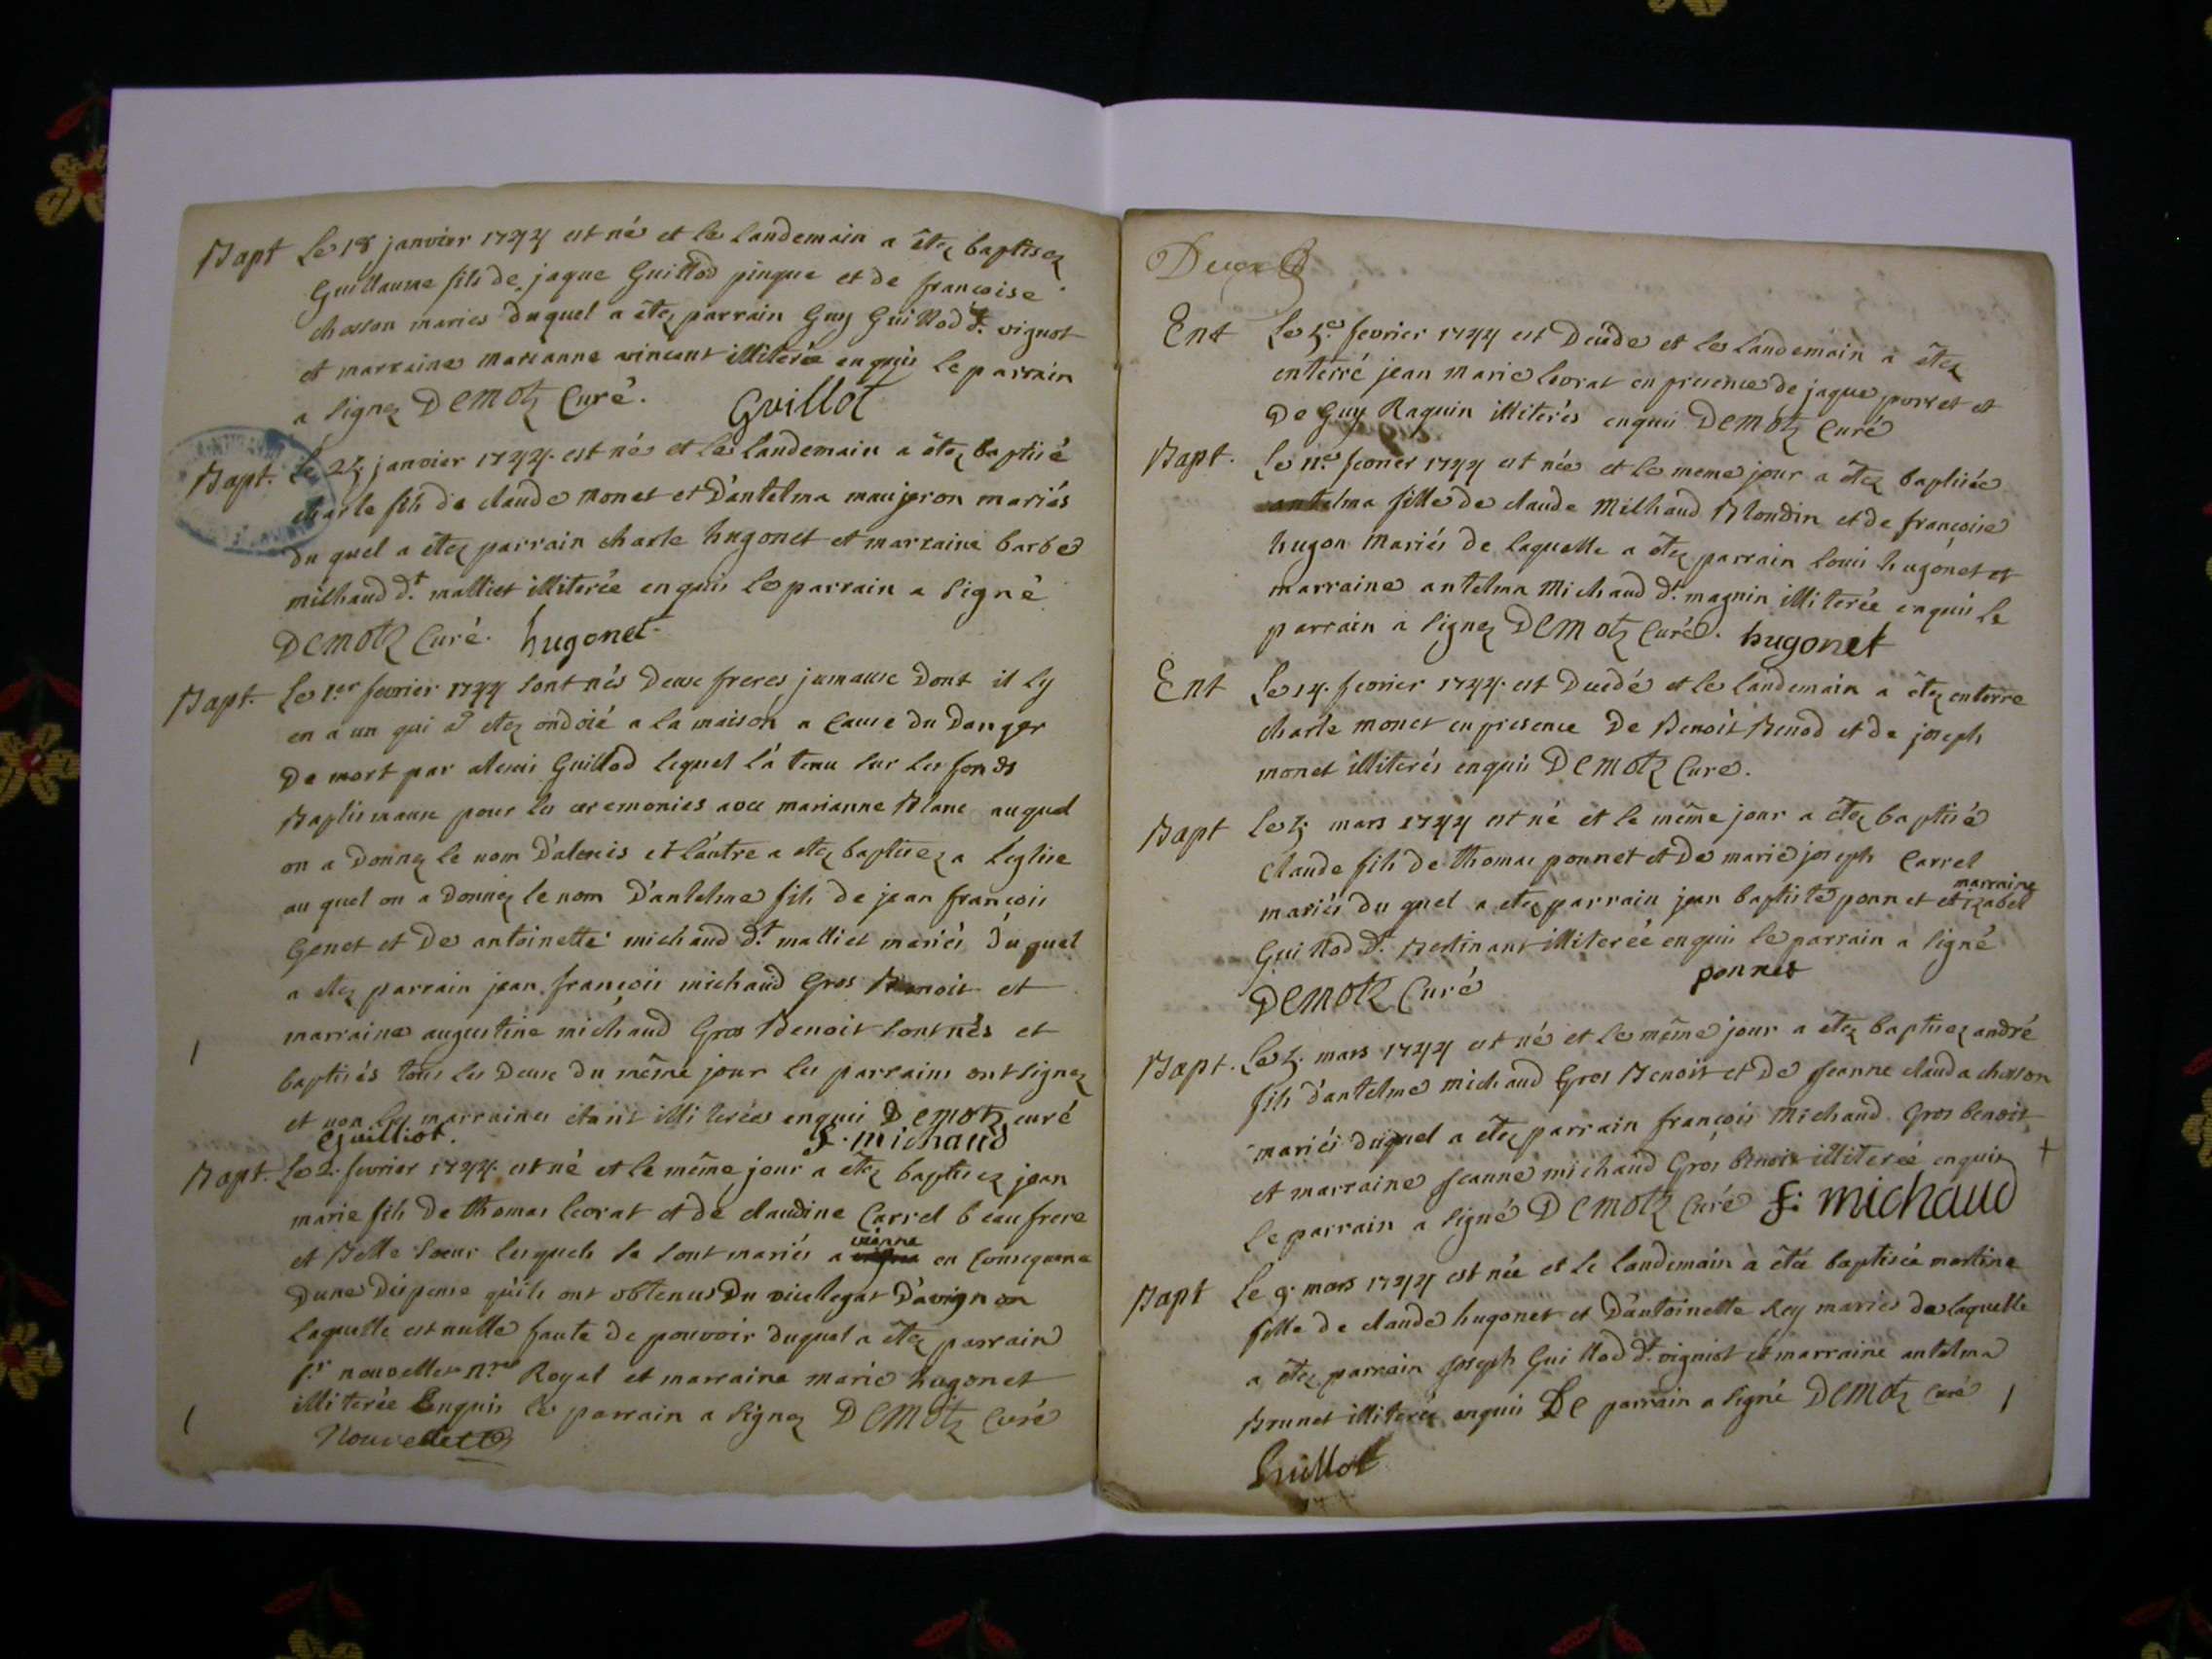 Bapt Le 18 janvier 1744 est né et le landemain a étez baptisez
Guillaume fils de jaque Guillod pinque et de francoise
chosson mariés duquel a étez parrain Guy Guillod dt. vignot
et marraine marianne vincent illiterée enquis le parrain
a signez DEMOTZ Curé. Guillot
Bapt. Le 25 janvier 1744. est né et le landemain a étez baptisé
charle fils de claude monet et D'antelma maujeron mariés
du quel a étez parrain charle hugonet et marraine barbe
milhaud dt. malliet illiterée enquis le parrain a signé
DEMOTZ Curé. hugonet
Bapt. Le 1.er fevrier 1744 sont nés Deux freres jumaux Dont il ly
en a un qui a etez ondoié a la maison a Cause du Danger
De mort par alexis Guillod lequel l'a tenu sur les fonds
Baptismaux pour les ceremonies avec marianne Blanc auquel
on a Donnez le nom D'alexis et l'autre a etez baptisez a leglise
au quel on a Donnez le nom D'antelme fils de jean francois
Genet et De antoinette michaud dt. malliet mariés Duquel
a etez parrain jean francois michaud Gros Benoit et
marraine augustine michaud Gros Benoit sont nés et
baptisés tous les Deux du même jour les parrains ont signez
et non les marraines étant illiterées enquis DEMOTZ curé
Guilliot. F. michaud
Bapt. Le 2. fevrier 1744. est né et le même jour a étez baptisez jean
marie fils De thomas levrat et de claudine Carrel beau frere
et Belle soeur lesquels se sont mariés a vienne en Consequence
Dune Dispense qu'ils ont obtenus Du vicelegat D'avignon
laquelle est nulle faute de pouvoir duquel a étez parrain
Sr. nouvellet nre Royal et marraine marie hugonet
illiterée Enquis le parrain a signez DEMOTZ Curé
Nouvellet
Ent Le 5.e fevrier 1744 est Decede et le landemain a étez
enterré jean marie levrat en presence de jaque porret et
De Guy Raquin illiterés enquis DEMOTZ Curé
Bapt. Le 11.e fevrier 1744 est née et le meme jour a étez baptisée
antelma fille de claude Milhaud Blondin et de francoise
hugon Mariés de laquelle a étez parrain louis hugonet et
marraine antelma Michaud dt. magnin illiterée enquis le
parrain a signez DEMOTZ Curé. hugonet
Ent Le 14. fevrier 1744. est Decedé et le landemain a étez enterre
charle monet en presence De Benoit Benod et de joseph
monet illiterés enquis DEMOTZ Cure.
Bapt Le 5 mars 1744 est né et le même jour a étez baptisé
Claude fils de thomas ponnet et de marie joseph Carrel
mariés du quel a etez parrain jean baptiste ponnet et marraine izabel
Guillod dt. Bertinant illiterée enquis le parrain a signé
DEMOTZ Curé ponnet
Bapt. Le 5. mars 1744 est né et le même jour a étez baptisez andré
fils d'antelme michaud Gros Benoit et De Jeanne clauda chosson
mariés duquel a étez parrain francois Michaud Gros benoit
et marraine Jeanne michaud Gros Benoit illiterée enquis
le parrain a signé DEMOTZ Curé F: michaud
Bapt Le 9. mars 1744 est née et le landemain a été baptisée martine
fille de claude hugonet et D'antoinette Rey mariés de laquelle
a étez parrain Joseph Guillod dt. vigniot et marraine antelma
Brunet illiterée enquis Le parrain a signé DEMOTZ Curé
Guillot